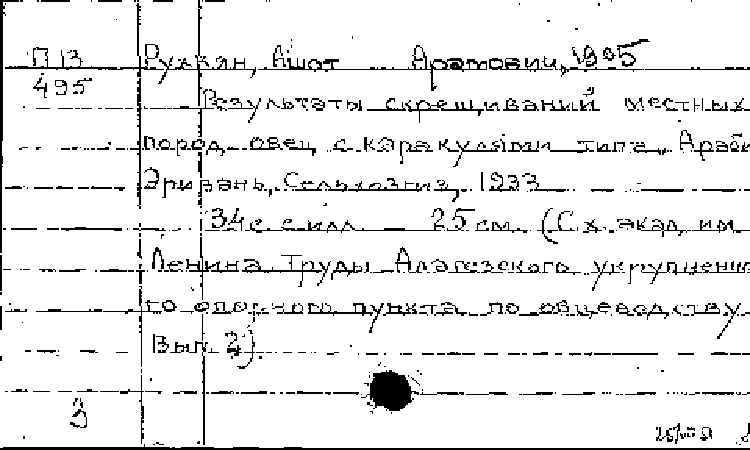 П 13 Рухкян, Ашот Арамович, 1905
495
Результаты скрещиваний местных
пород овец с каракулями типа „Араби
Эривань, Сельхозгиз, 1933
34 с. с илл. 25 см. (С.х. акад. им.
Ленина. Труды Алагезского укрупненно
го опорного пункта по овцеводству
Вып. 2).
3